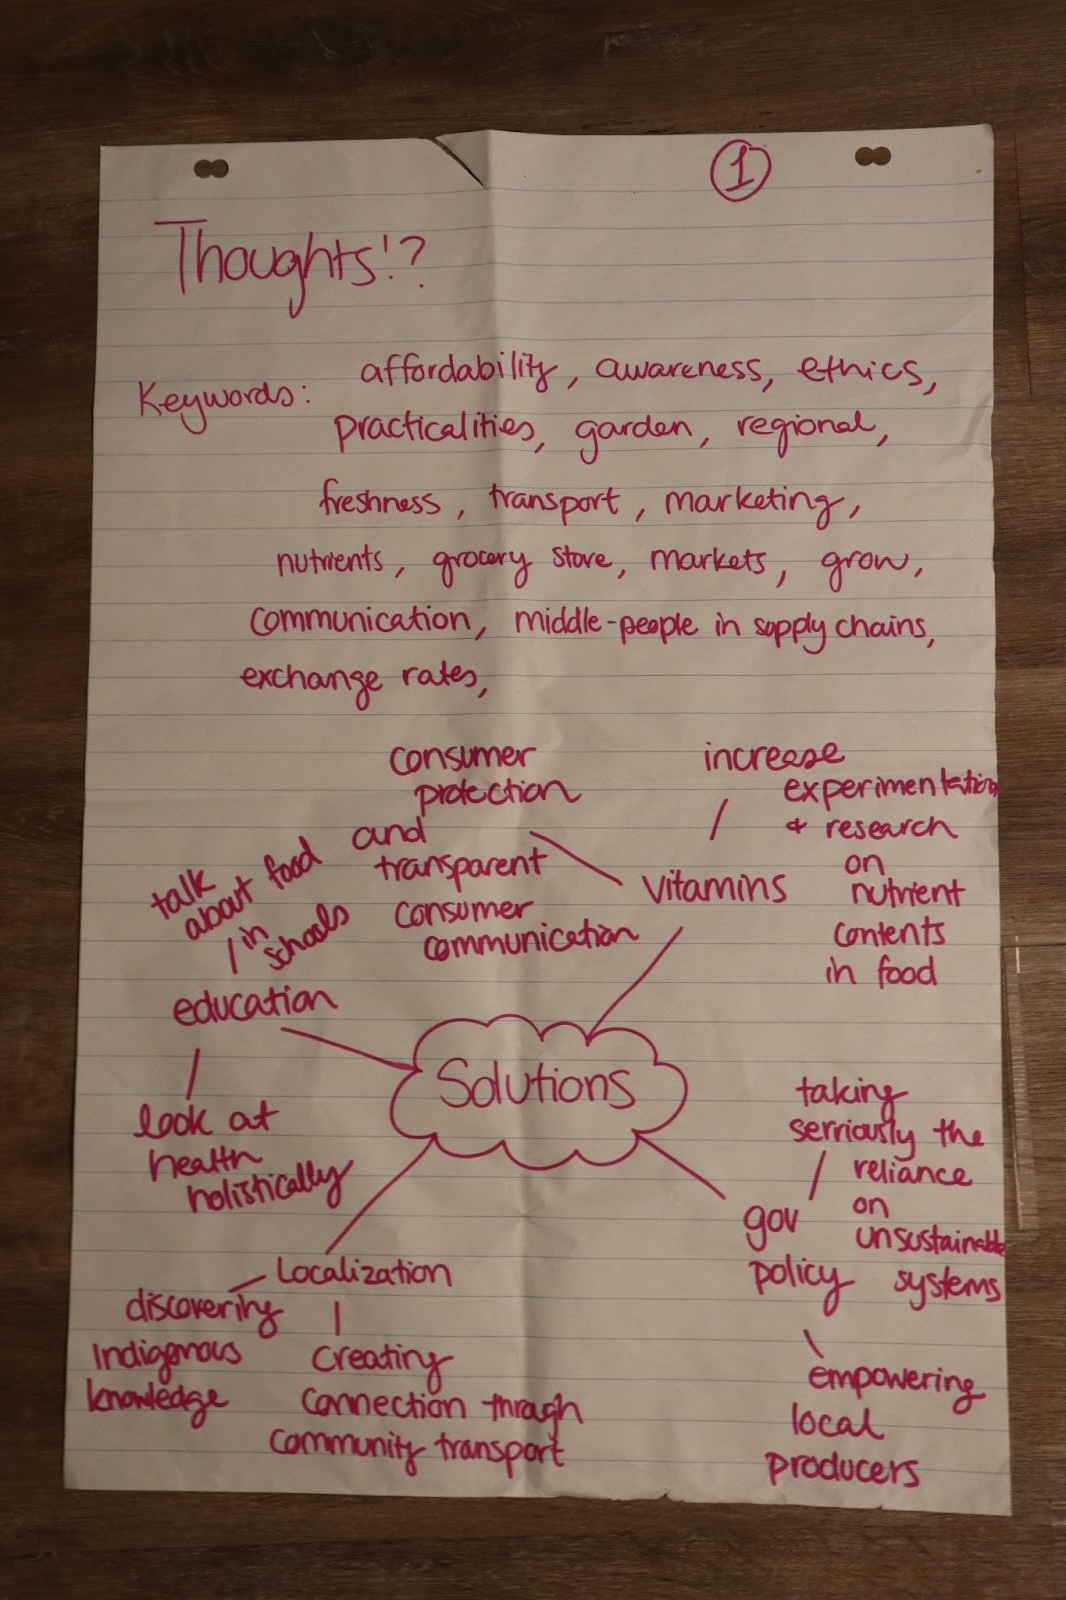 1
Thoughts!?
Keywords:
affordability, awareness, ethics,
practicalities, garden, regional,
freshness, transport, marketing,
nutrients, grocery store, markets, grow,
communication, middle-people in supply chains,
exchange rates,
consumer
protection
and
transparent
consumer
communication
increase
experimentation
+ research
on
nutrient
contents
in food
vitamins
talk
about food
in
schools
education
look at
health
holistically
Solutions
taking
serriously the
reliance
on
unsustainable
systems
gov
policy
empowering
local
producers
Localization
discovering
Indigenous
knowledge
creating
connection through
community transport